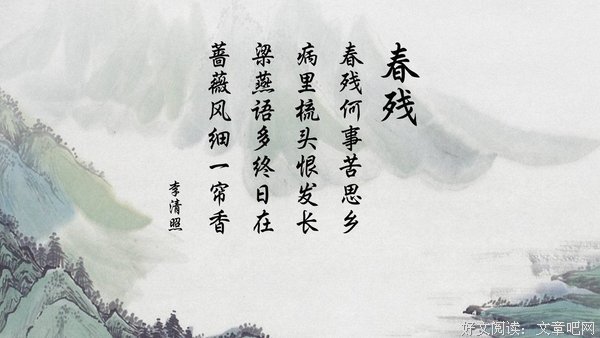 春残
春残何事苦思乡
病里梳头恨发长
梁燕语多终日在
蔷薇风细一帘香
李清照
好文阅读：文章吧网